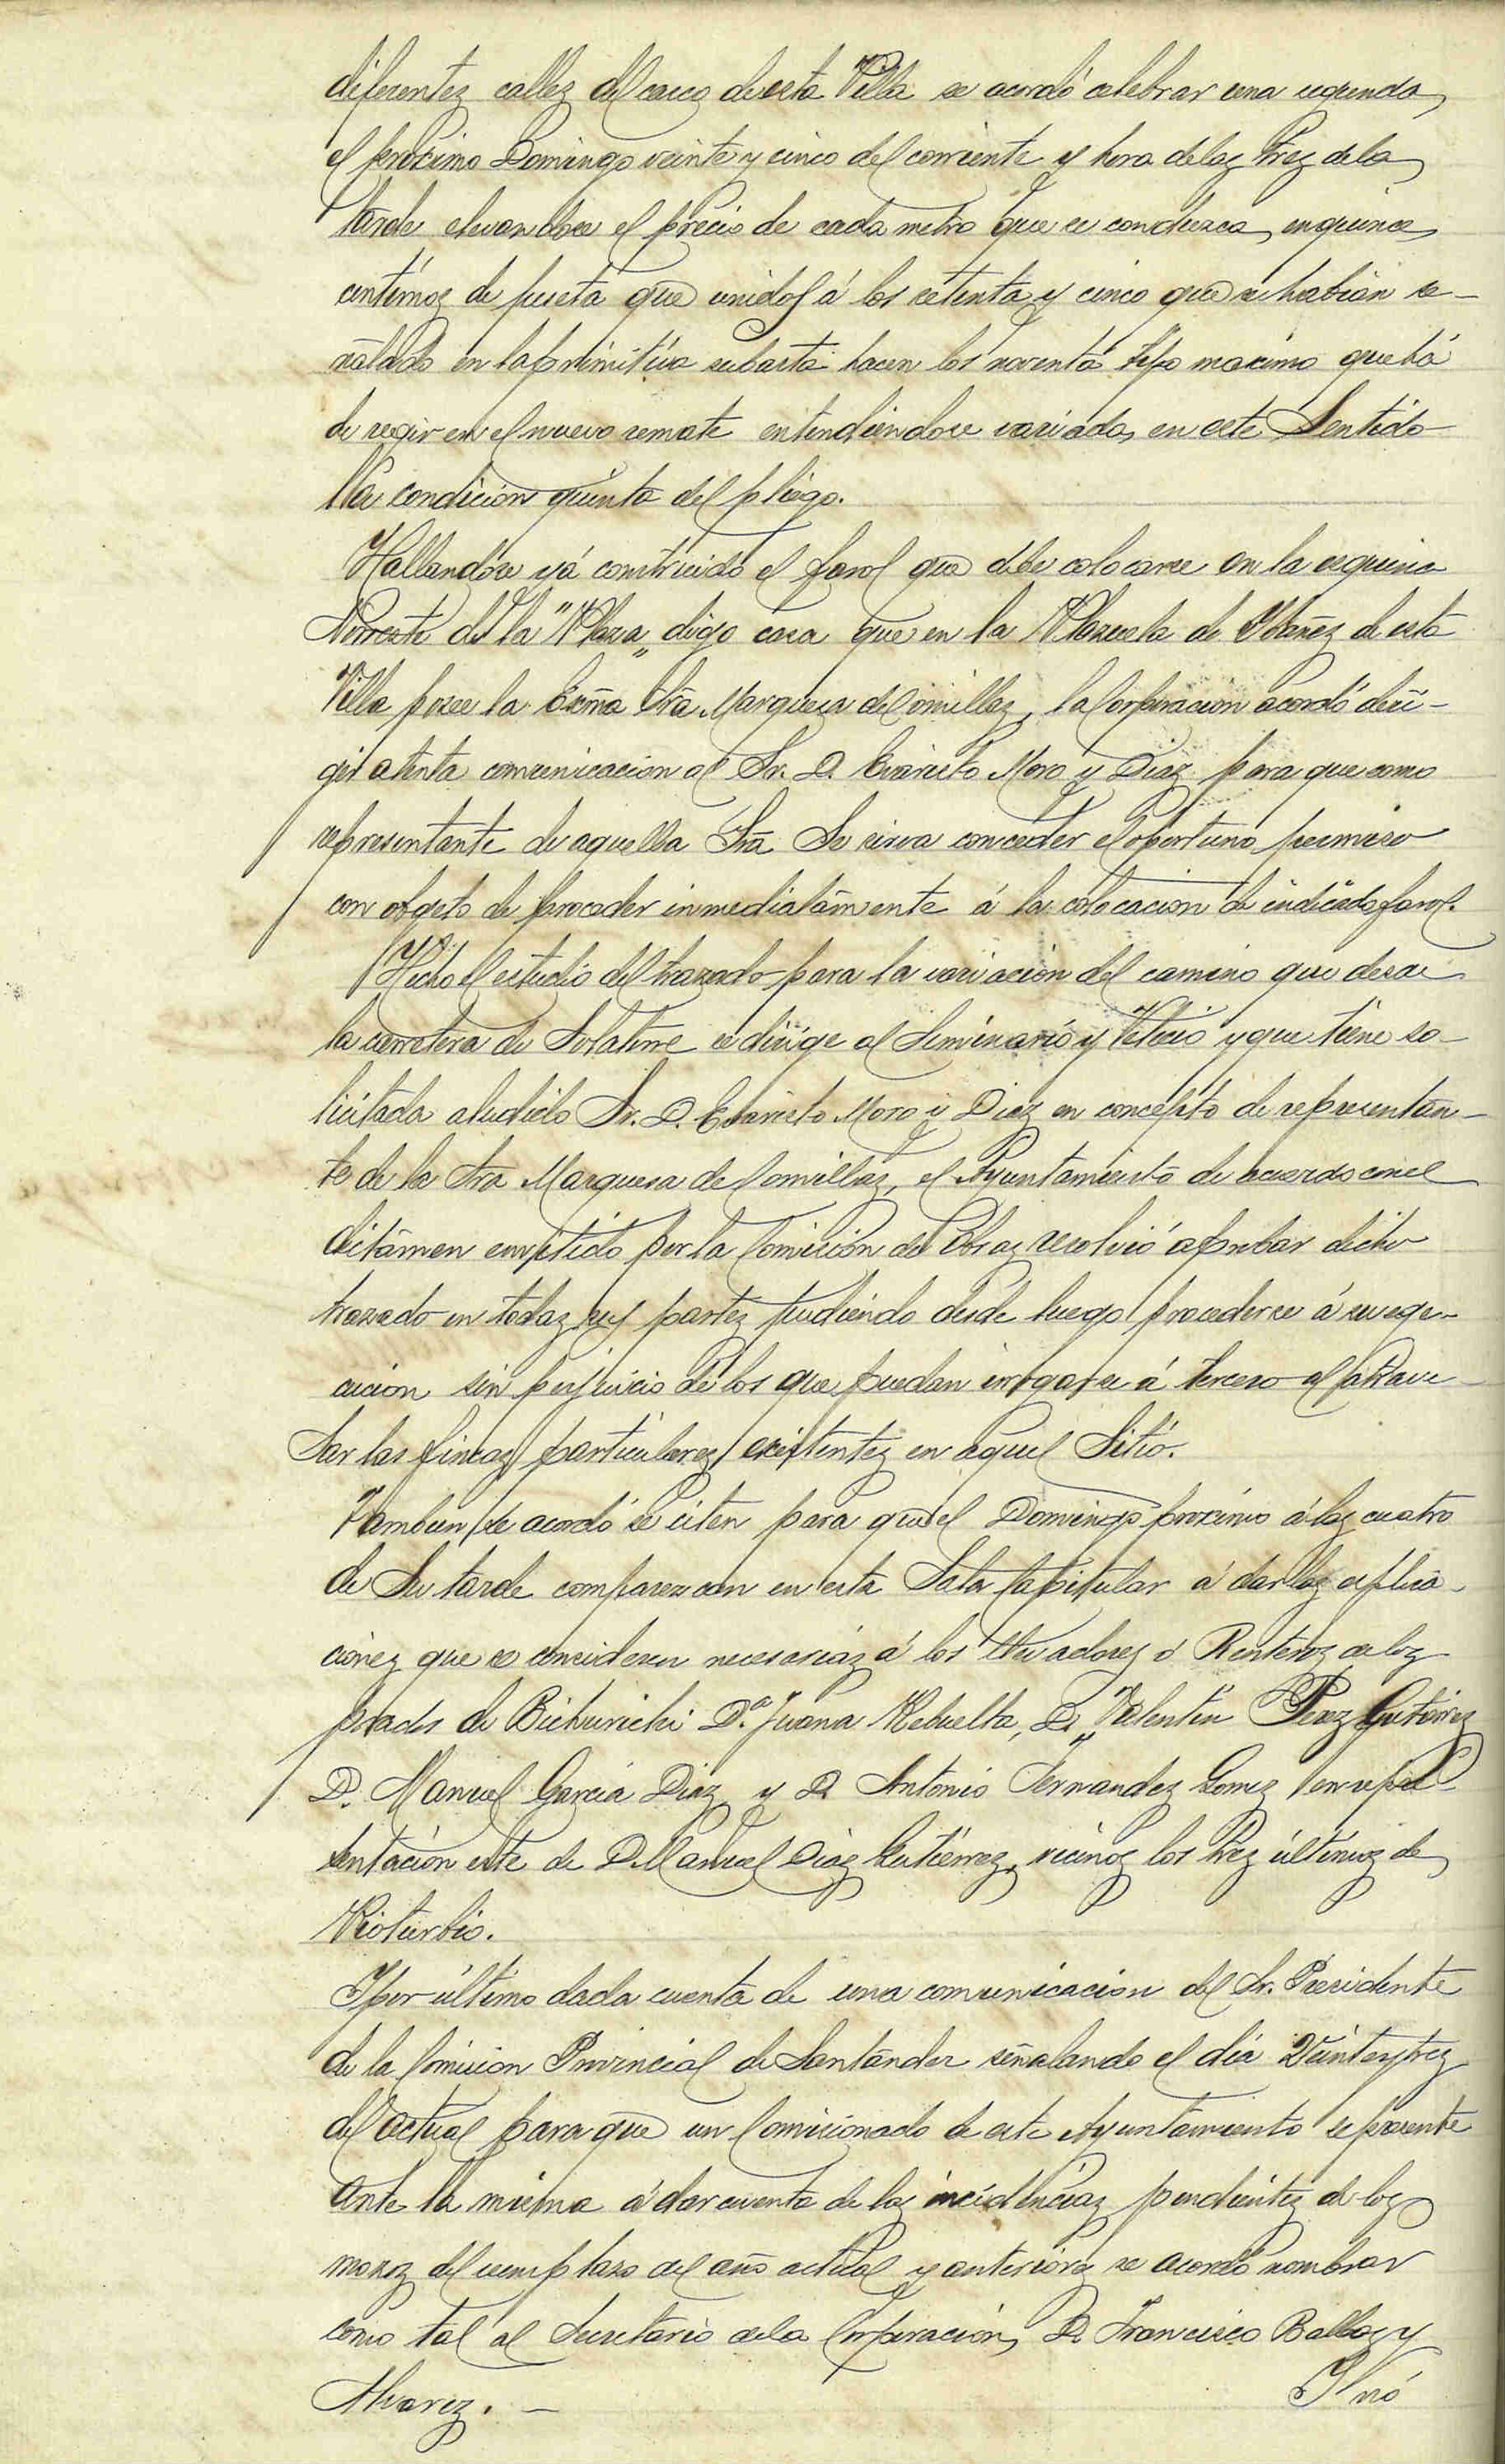 diferentes calles del casco de esta Villa se acordó celebrar una segunda
el proximo Domingo veinte y cinco del corriente y hora de las tres de la
tarde elevandose el precio de cada metro que se conduzca, en quince
centimos de peseta que unidos á los setenta y cinco que se habian se-
ñalado en la primitiva subasta hacen los noventa tipo maximo que há
de regir en el nuevo remate entendiendose variada, en este Sentido
la condicion quinta del pliego.
Hallandose yá construido el farol que debe colocarse en la esquina
Noroeste de la "Plaza" digo casa que en la Plazuela de Ibañez de esta
Villa posee la Excma Sra Marquesa de Comillas, la Corporacion acordó diri-
gir atenta comunicacion al Sr. D. Evaristo Moro y Diaz para que como
representante de aquella Sra Se sirva conceder el oportuno permiso
con objeto de proceder inmediatamente á la colocacion de indicado farol.
Hecho el estudio del trazado para la variacion del camino que desde
la carretera de Solatorre se dirige al Seminario y Velecio y que tiene so-
licitada aludido Sr. D. Evaristo Moro y Diaz en concepto de representan-
te de la Sra Marquesa de Comillas, el Ayuntamiento de acuerdo con el
dictámen emitido por la Comision de Obras resolvió aprobar dicho
trazado en todas sus partes pudiendo desde luego procederse á su eje-
cucion sin perjuicio de los que puedan irrogarse á tercero al atrave-
Sar las fincas particulares existentes en aquel Sitio.
Tambien se acordó se citen para que el Domingo proximo á las cuatro
de Su tarde comparezcan en esta Sala Capitular á dar las esplica-
ciones que se consideren necesarias á los llevadores ó Renteros de los
prados de Bichurichi D.ª Juana Rebuelta, D. Valentin Perez Gutierrez
D. Manuel Garcia Diaz y D. Antonio Fernandez Gomez en repre-
sentacion este de D. Manuel Diaz Gutierrez, vecinos los tres últimos de
Rioturbio.
Y por último dada cuenta de una comunicacion del Sr. Presidente
de la Comision Provincial de Santander señalando el dia Veinte y tres
del actual para que un Comisionado de este Ayuntamiento se presente
ante la misma á dar cuenta de las incidencias pendientes de los
mozos del reemplazo del año actual y anteriores se acordó nombrar
como tal al Secretario de la Corporacion, D. Francisco Ballas y
Alvarez. -
Y nó